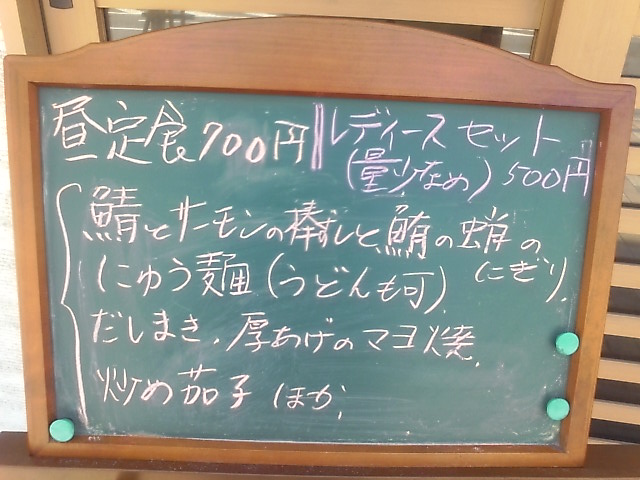 昼定食700円
レディースセット
(量少なめ) 500円
鯖とサーモンの棒すしと、鮪の蛸の
にぎり、
にゅう麺(うどんも可)
だしまき、厚あげのマヨ焼、
炒め茄子 ほか、